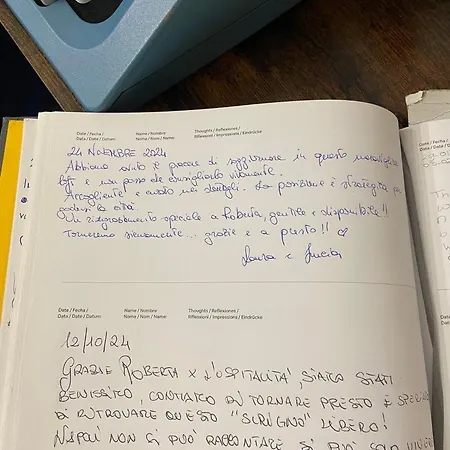 Date / Fecha / Name / Nombre Thoughts / Reflexiones /
Data / Date / Datum: Nome / Nom / Name: Riflessioni / Impressions / Eindrücke
24 NOVEMBRE 2024
Abbiamo avuto il piacere di soggiornare in questo meraviglioso
loft e non posso che consigliarlo vivamente.
Accogliente e curato nei dettagli. La posizione è strategica per
godersi la città
Un ringraziamento speciale a Roberta, gentile e disponibile!!
Torneremo sicuramente... grazie e a presto!! ♡
Laura e Lucia
Date / Fecha / Name / Nombre Thoughts / Reflexiones /
Data / Date / Datum: Nome / Nom / Name: Riflessioni / Impressions / Eindrücke
12/10/24
GRAZIE ROBERTA X L'OSPITALITÀ, SIAMO STATI
BENISSIMO, CONTIAMO DI TORNARE PRESTO E
DI RITROVARE QUESTO "SCRIGNO" LIBERO!
NAPOLI NON SI PUÒ RACCONTARE SI PUÒ SOLO